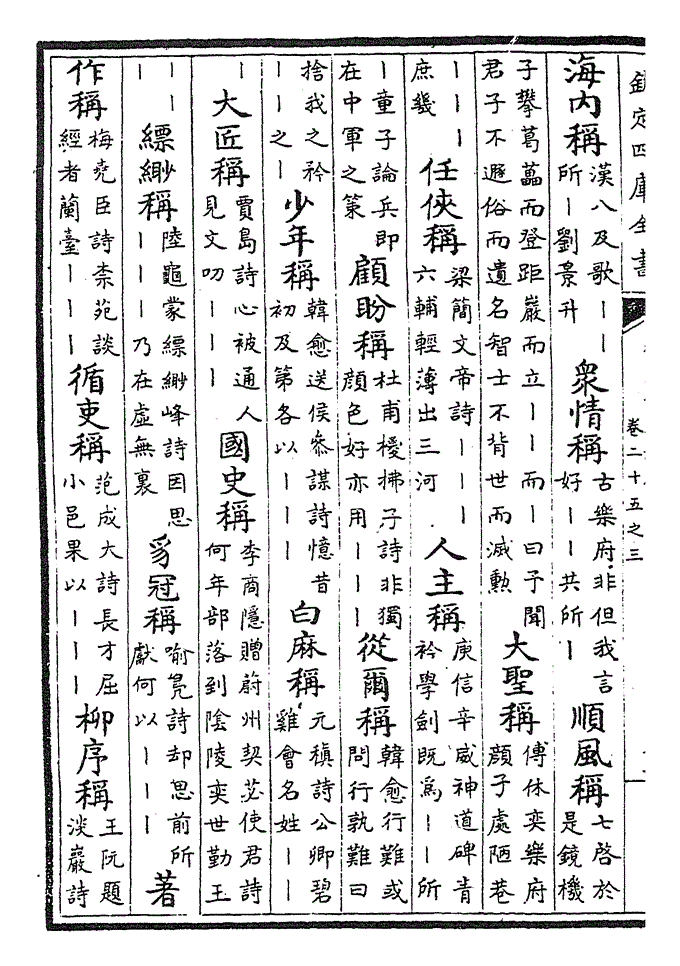 欽定四庫全書
卷二十五之三
海内稱漢八及歌｜｜所｜劉景升衆情稱古樂府非但我言好｜｜共所｜順風稱七啓於是鏡機
子攀葛藟而登距巖而立｜｜而｜曰予聞君子不遯俗而遺名智士不背世而滅勲大聖稱傅休奕樂府顔子處陋巷
｜｜｜庶幾任俠稱梁簡文帝詩｜｜｜六輔輕薄出三河人主稱庾信辛威神道碑青衿學劍既爲｜｜所
｜童子論兵即在中軍之策顧盼稱杜甫椶拂子詩非獨顔色好亦用｜｜｜從爾稱韓愈行難或問行孰難曰
捨我之矜｜｜之｜少年稱韓愈送侯叅謀詩憶昔初及第各以｜｜｜白麻稱元稹詩公卿碧雞會名姓｜｜
｜大匠稱賈島詩心被通人見文叨｜｜｜國史稱李商隱贈蔚州契苾使君詩何年部落到隂陵奕世勤王
｜｜｜｜縹緲稱陸龜蒙縹緲峰詩因思｜｜｜乃在虚無裏豸冠稱喻鳬詩却思前所獻何以｜｜｜著
作稱梅堯臣詩柰苑談經者蘭臺｜｜｜循吏稱范成大詩長才屈小邑果以｜｜｜柳序稱王阮題淡巖詩